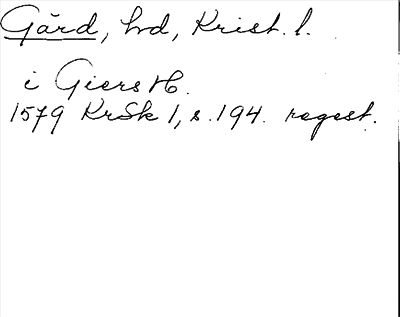 Gård, hd, Krist. l.
i Giers H.
1579 KrSk 1, s. 194. regest.